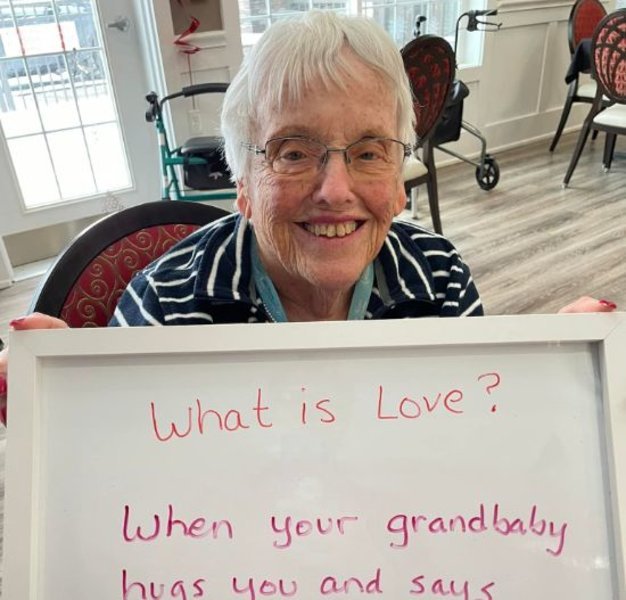 What is Love?
When your grandbaby
hugs you and says